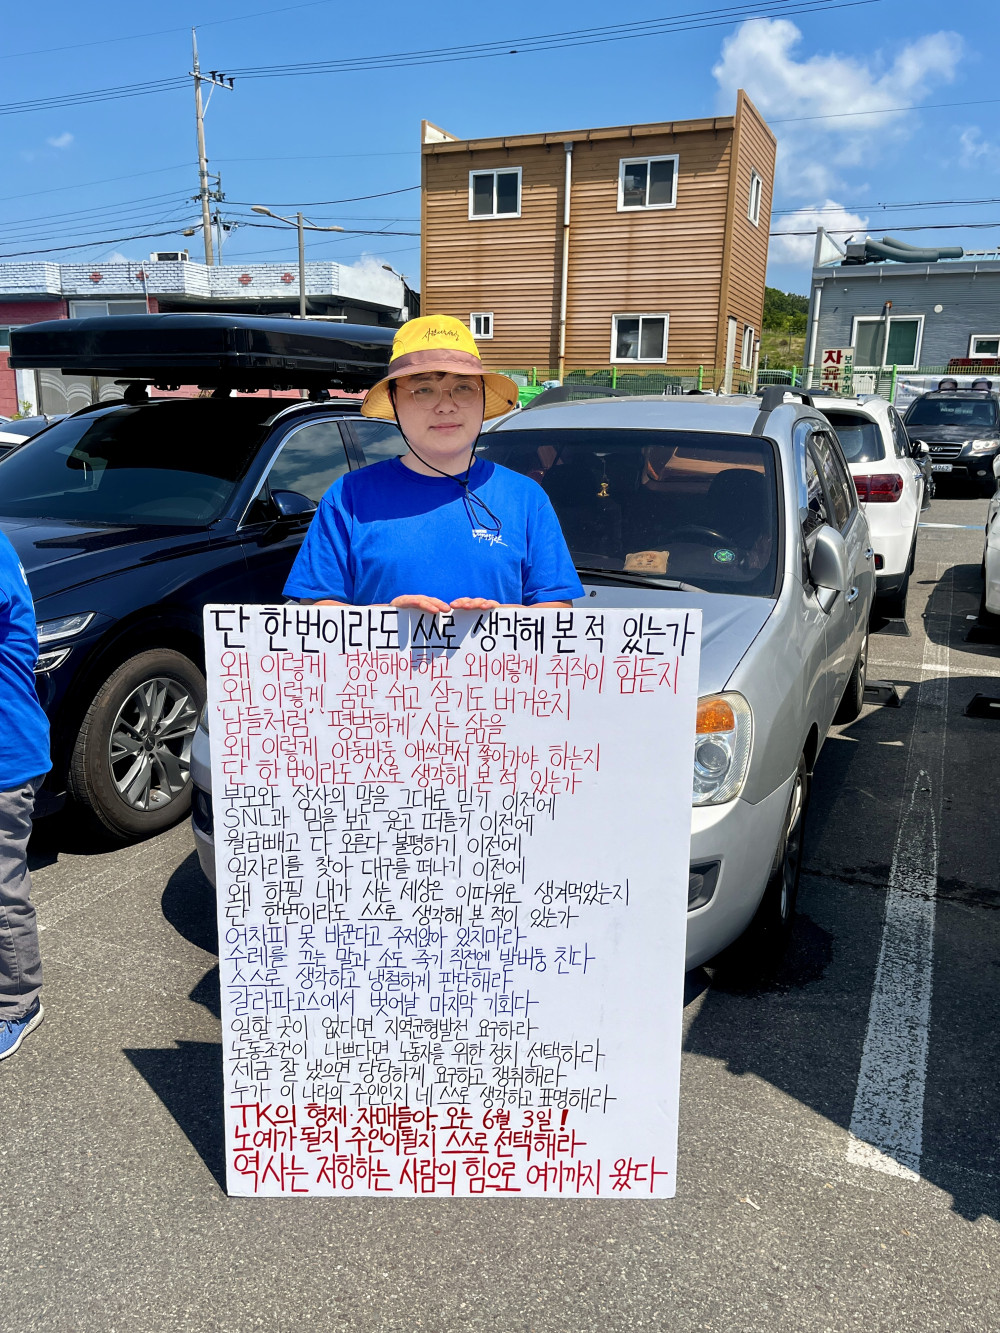 단 한번이라도 쓰스로 생각해 본 적 있는가
왜 이렇게 경쟁해야하고 왜 이렇게 취직이 힘든지
왜 이렇게 숨만 쉬고 살기도 버거운지
'남들처럼' '평범하게' 사는 삶을
왜 이렇게 아둥바둥 애쓰면서 쫓아가야 하는지
단 한번이라도 스스로 생각해 본 적 있는가
부모와 상사의 말을 그대로 믿기 이전에
SNL과 밈을 보고 웃고 떠들기 이전에
월급빼고 다 오른다 불평하기 이전에
일자리를 찾아 대구를 떠나기 이전에
왜 하필 내가 사는 세상은 이따위로 생겨먹었는지
단 한번이라도 스스로 생각해 본 적이 있는가
어차피 못 바꾼다고 주저앉아 있지마라
수레를 끄는 말과 소도 죽기 직전엔 발버둥 친다
스스로 생각하고 냉철하게 판단해라
갈라파고스에서 벗어날 마지막 기회다
일할 곳이 없다면 지역균형발전 요구하라
노동조건이 나쁘다면 노동자를 위한 정치 선택하라
세금 잘 냈으면 당당하게 요구하고 쟁취해라
누가 이 나라의 주인인지 네 스스로 생각하고 표명해라
TK의 형제·자매들아, 오는 6월 3일!
노예가 될지 주인이될지 스스로 선택해라
역사는 저항하는 사람의 힘으로 여기까지 왔다